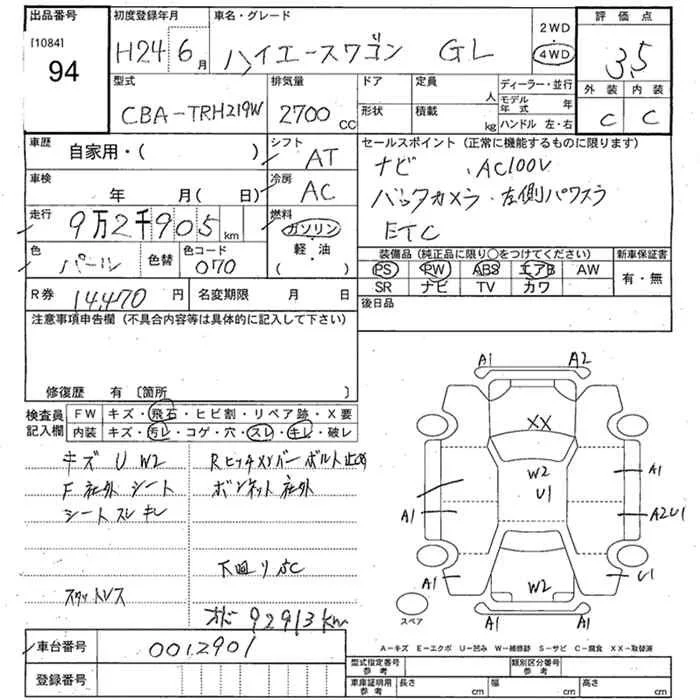 出品番号 初度登録年月 車名・グレード 2WD 評価点
[1084] 94 H24 6月 ハイエースワゴン GL 4WD 3.5
型式 排気量 ドア 定員 人 ディーラー・並行 外装 内装
CBA-TRH219W 2700 CC 形状 積載 kg モデル年式 年 ハンドル 左・右 C C
車歴 自家用・( ) シフト AT セールスポイント (正常に機能するものに限ります)
車検 年 月( 日) 冷房 AC ナビ . AC100V
走行 9万2千905km 燃料 ガソリン バックカメラ・左側パワスラ
軽・油 ETC
色 パール 色替 色コード 070 ( ) 装備品 (純正品に限り○をつけてください) 新車保証書
PS PW ABS エアB AW 有・無
R券 14,470円 名変期限 月 日 SR ナビ TV カワ
注意事項申告欄 (不具合内容等は具体的に記入して下さい) 後日品
修復歴 有 〔箇所 〕
検査員記入欄 FW キズ・飛石・ヒビ割・リペア跡・X要
内装 キズ・汚レ・コゲ・穴・スレ・キレ・破レ
キズ U W2 Rヒッチメンバーボルト止め
F社外シート ボンネット社外
シートスレキレ
下廻りSC
スタットレス
オド 92913km
車台番号 0012901
登録番号
A1 A2
XX
W2
U1
A1
A1 A2U1
A1 W2 U1
スペア
A1 A1
A－キズ E－エクボ U－凹み W－補修跡 S－サビ C－腐食 XX－取替済
型式指定番号 類別区分番号
車庫証明用参考 長さ cm 幅 cm 高さ cm